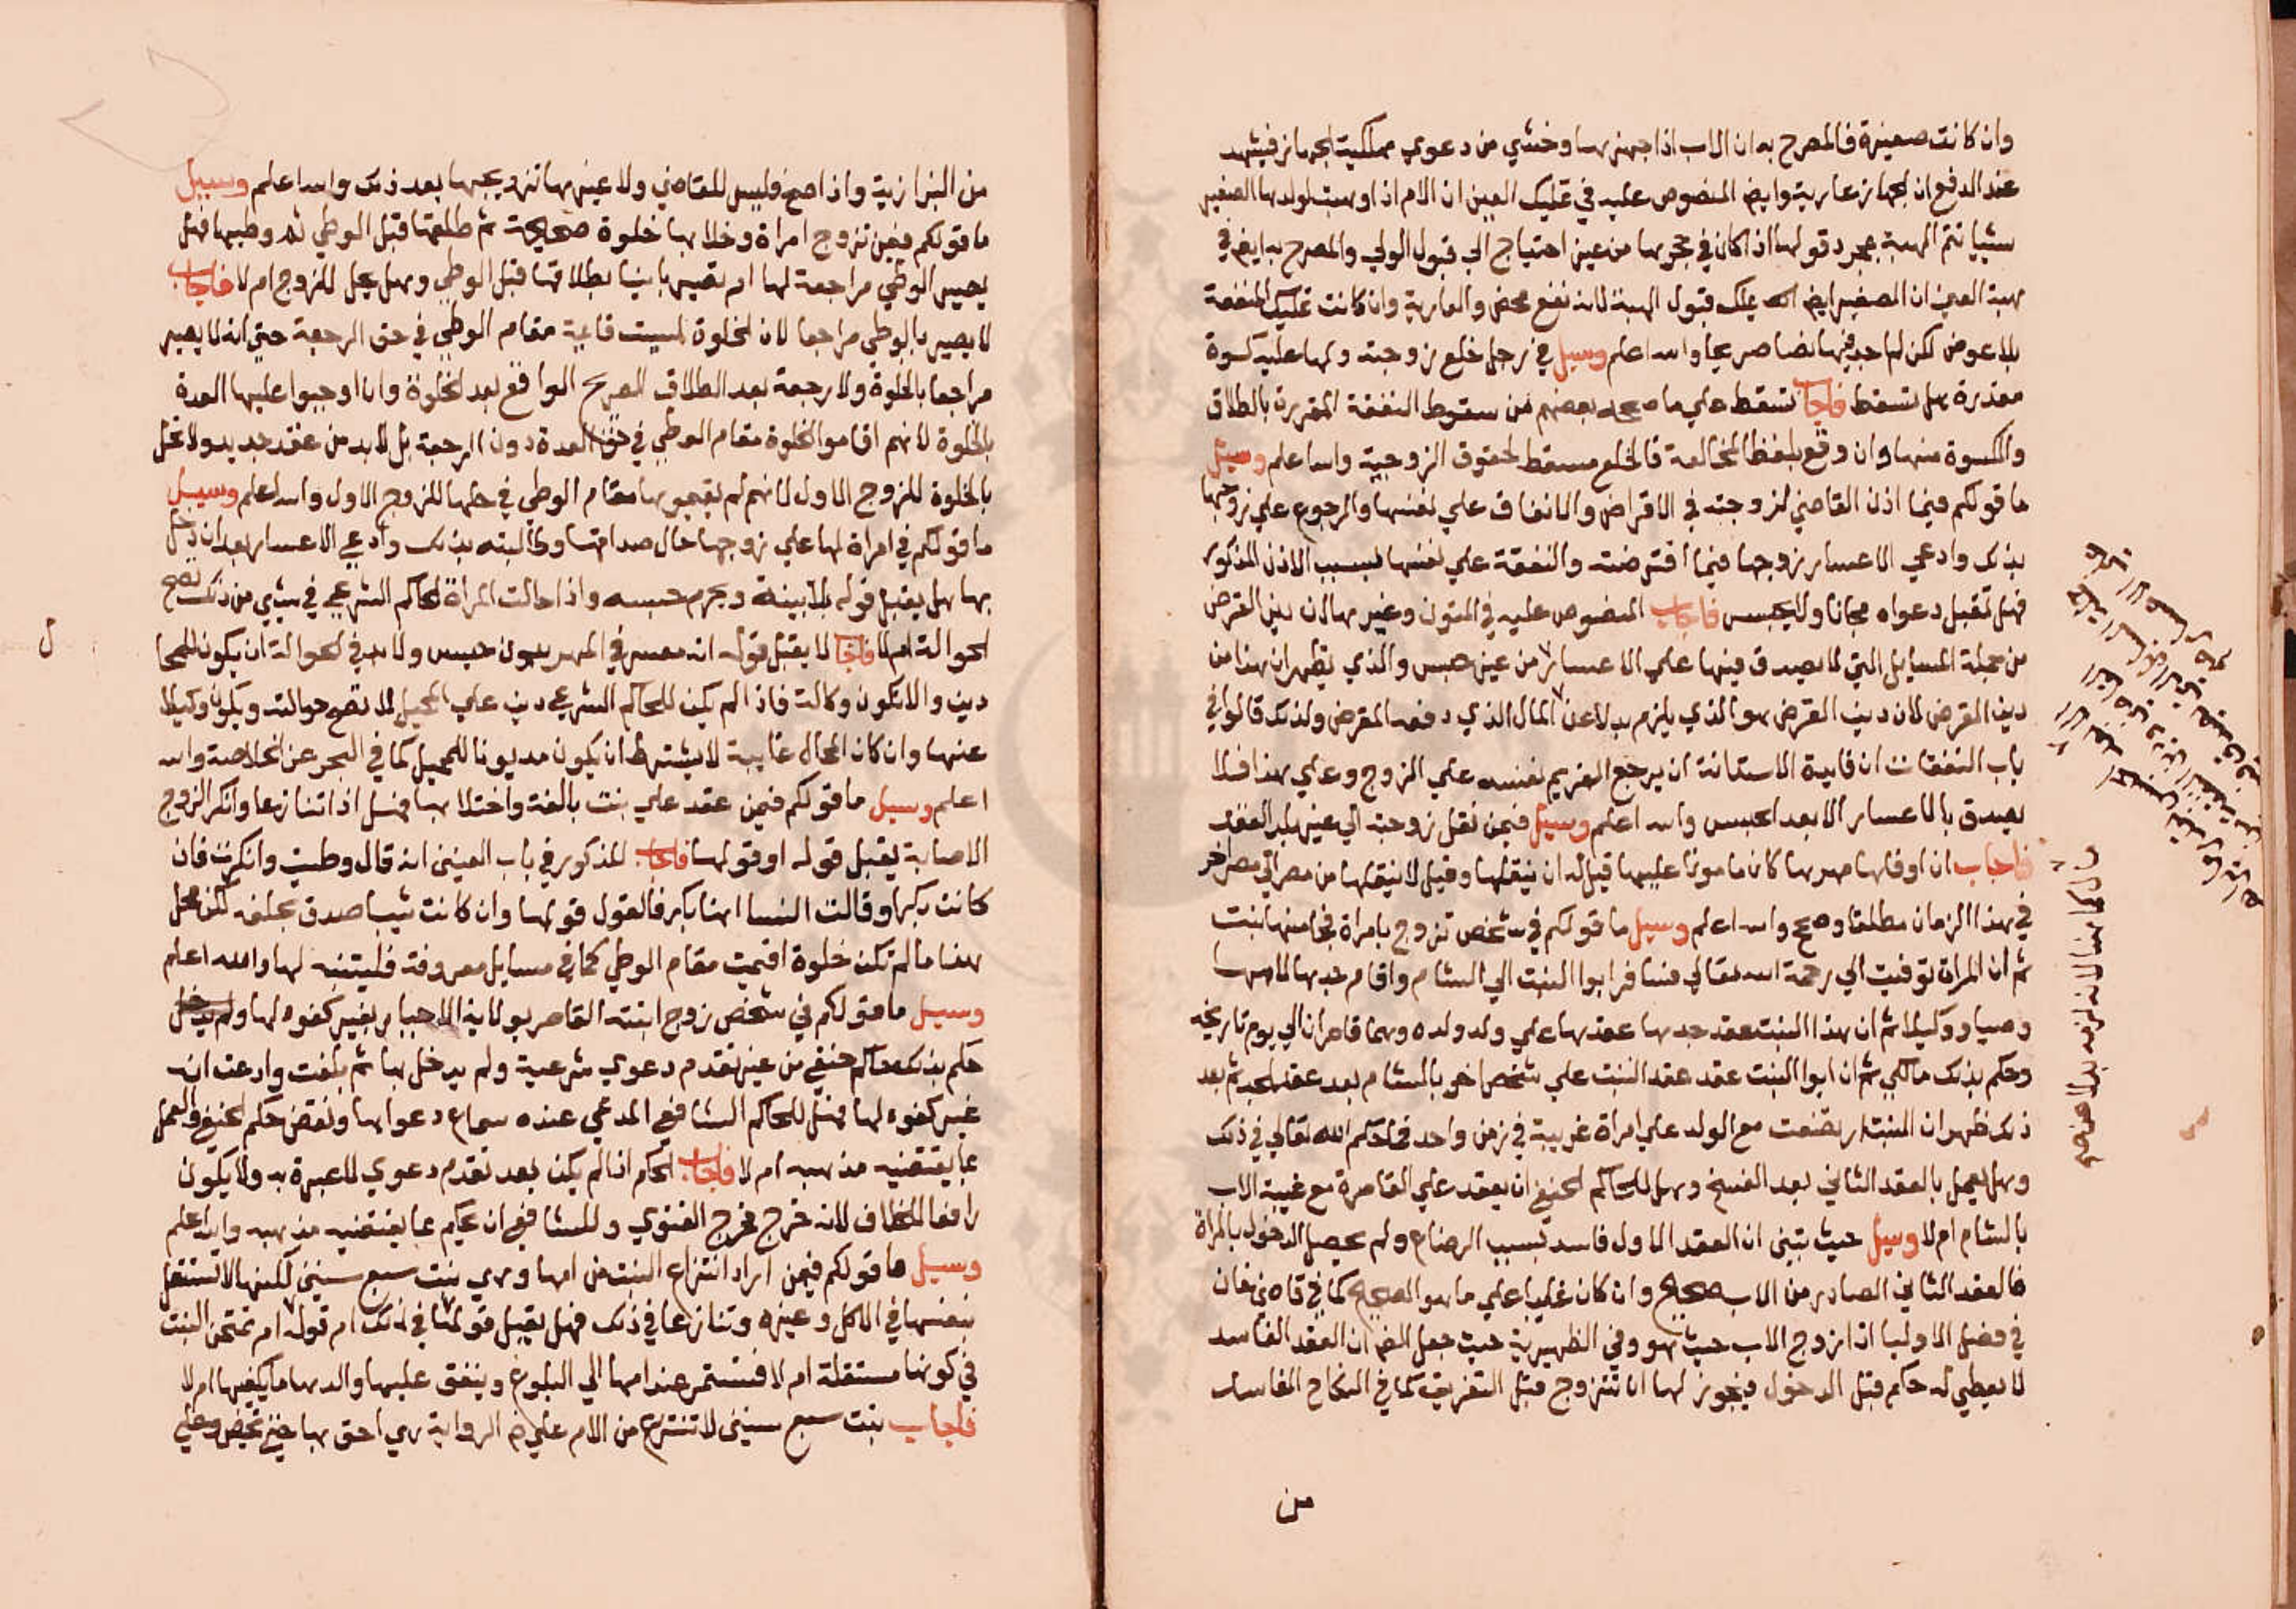 وان كانت صغيرة فالمصرح به ان الاب اذا جهزها وخشي من دعوي مملكية الجهاز فيشهد
عند الدفع ان الجهاز عارية وايض المنصوص عليه في تمليك العين ان الام اذا اوهبت لولدها الصغير
شيا تتم الهبة بمجرد قولها اذا كان في حجرها من غير احتياج الي قبول الولي والمصرح به ايض في
هبة العين ان الصغير ايض يملك قبول الهبة لانه نفع محض والعارية وان كانت تمليك المنفعة
بلا عوض لكن لم اجد فيها نصا صريحا والله اعلم وسيل في رجل خلع زوجته ولها عليه كسوة
مقدرة هل تسقط فاجاب تسقط علي ما صححه بعضهم من سقوط النفقة المقررة بالطلاق
والكسوة منها وان وقع بلفظ المخالعة فالخلع مسقط لحقوق الزوجية والله اعلم وسيل
ما قولكم فيما اذن القاضي لزوجته في الاقراض والانفاق علي نفسها والرجوع علي زوجها
بذلك وادعي الاعسار زوجها فيما اقترضته والنفقة علي نفسها بسبب الاذن المذكور
فهل تقبل دعواه مجانا ولا يحبس فاجاب المنصوص عليه في المتون وغيرها ان دين القرض
من جملة المسايل التي لا يصدق فيها علي الاعسار من غير حبس والذي يظهر ان هذا من
دين القرض لان دين القرض هو الذي يلزم بدلا عن المال الذي دفعه المقرض ولذلك قالوا في
باب النفقات ان فايدة الاستدانة ان يرجع الغريم بنفسه علي الزوج وعلي هذا فلا
يصدق بالاعسار الا بعد الحبس والله اعلم وسيل فيمن نقل زوجته الي غير بلد العقد
فاجاب ان اوفاها مهرها كان مامونا عليها قيل له ان ينقلها وقيل لا ينقلها من مصر الي مصر اخر
في هذا الزمان مطلقا وصحح والله اعلم وسيل ما قولكم في شخص تزوج بامراة فجا منها بنت
ثم ان المراة توفيت الي رحمة الله تعالي فسافر ابوا البنت الي الشام واقام جدها لامها
وصيا ووكيلا ثم ان هذا البنت عقد جدها عقدها علي ولد ولده وهما قاصران الي يوم تاريخه
وحكم بذلك مالكي ثم ان ابوا البنت عقد عقد البنت علي شخص اخر بالشام بعد عقد الجد ثم بعد
ذلك ظهر ان البنت ارتضعت مع الولد علي امراة غريبة في زمن واحد فما حكم الله تعالي في ذلك
وهل يعمل بالعقد الثاني بعد الفسخ وهل للحاكم الحنفي ان يعقد علي القاصرة مع غيبة الاب
بالشام ام لا وسيل حيث تبين ان العقد الاول فاسد بسبب الرضاع ولم يحصل الدخول بالمراة
فالعقد الثاني الصادر من الاب صحيح وان كان غايبا علي ما هو الصحيح كما في قاضي خان
في فصل الاوليا اذا زوج الاب حيث هو وفي الظهيرية حيث جعل ان العقد الفاسد
لا يعطي له حكم قبل الدخول فيجوز لها ان تتزوج قبل التفريق كما في النكاح الفاسد
من
من البزازية واذا صح فليس للقاضي ولا غيرها تزويجها بعد ذلك والله اعلم وسيل
ما قولكم فيمن تزوج امراة وخلا بها خلوة صحيحة ثم طلقها قبل الوطي ثم وطيها فهل
يصير الوطي مراجعة لها ام تصير باينا بطلاقها قبل الوطي وهل يحل للزوج ام لا فاجاب
لا يصير بالوطي مراجعا لان الخلوة ليست قايمة مقام الوطي في حق الرجعة حتي انه لا يصير
مراجعا بالخلوة ولا رجعة بعد الطلاق الصريح الواقع بعد الخلوة وان اوجبوا عليها العدة
بالخلوة لانهم اقاموا الخلوة مقام الوطي في حق العدة دون الرجعة بل لا بد من عقد جديد ولا تحل
بالخلوة للزوج الاول لانهم لم يقيموها مقام الوطي في حلها للزوج الاول والله اعلم وسيل
ما قولكم في امراة لها علي زوجها حال صداقها وطالبته بذلك وادعي الاعسار بعد ان دخل
بها هل يقبل قوله بلا بينة ويحرم حبسه واذا احالت المراة الحاكم الشرعي في شي من ذلك تصح
الحوالة ام لا فاجاب لا يقبل قوله انه معسر في المهر بدون حبس ولا بد في الحوالة ان يكون للمحا
ل
دين والا تكون وكالة فاذا لم يكن للحاكم الشرعي دين علي المحيل لا تصح حوالته ويكون وكيلا
عنها وان كان المحال غايبة لا يشترط ان يكون مديونا للمحيل كما في البحر عن الخلاصة والله
اعلم وسيل ما قولكم فيمن عقد علي بنت بالغة واختلا بها فهل اذا تنازعا وانكر الزوج
الاصابة يقبل قوله او قولها فاجاب المذكور في باب العنين انه قال وطيت وانكرت فان
كانت بكرا وقالت النسا انها بكر فالقول قولها وان كانت ثيبا صدق بحلفه لكن محل
هذا ما لم تكن خلوة اقيمت مقام الوطي كما في مسايل معروفة فليتنبه لها والله اعلم
وسيل ما قولكم في شخص زوج ابنته القاصر بولاية الاجبار بغير كفوء لها
حكم بذلك حاكم حنفي من غير تقدم دعوي شرعية ولم يدخل بها ثم بلغت وادعت انه
غير كفوء لها فهل للحاكم الشافعي المدعي عنده سماع دعواها ونقض حكم الحنفي والعمل
بما يقتضيه مذهبه ام لا فاجاب الحكم اذا لم يكن بعد تقدم دعوي لا عبرة به ولا يكون
رافعا للخلاف لانه خرج مخرج الفتوي وللشافعي ان يحكم بما يقتضيه مذهبه والله اعلم
وسيل ما قولكم فيمن اراد انتزاع البنت من امها وهي بنت سبع سنين لكنها لا تستقل
بنفسها في الاكل وغيره وتنازعا في ذلك فهل يقبل قولها في ذلك ام قوله ام تمتحن البنت
في كونها مستقلة ام لا فتستمر عند امها الي البلوغ وينفق عليها والدها ما يكفيها ام لا
فاجاب بنت سبع سنين لا تنتزع من الام علي الرواية هي احق بها حتي تحيض وعلي